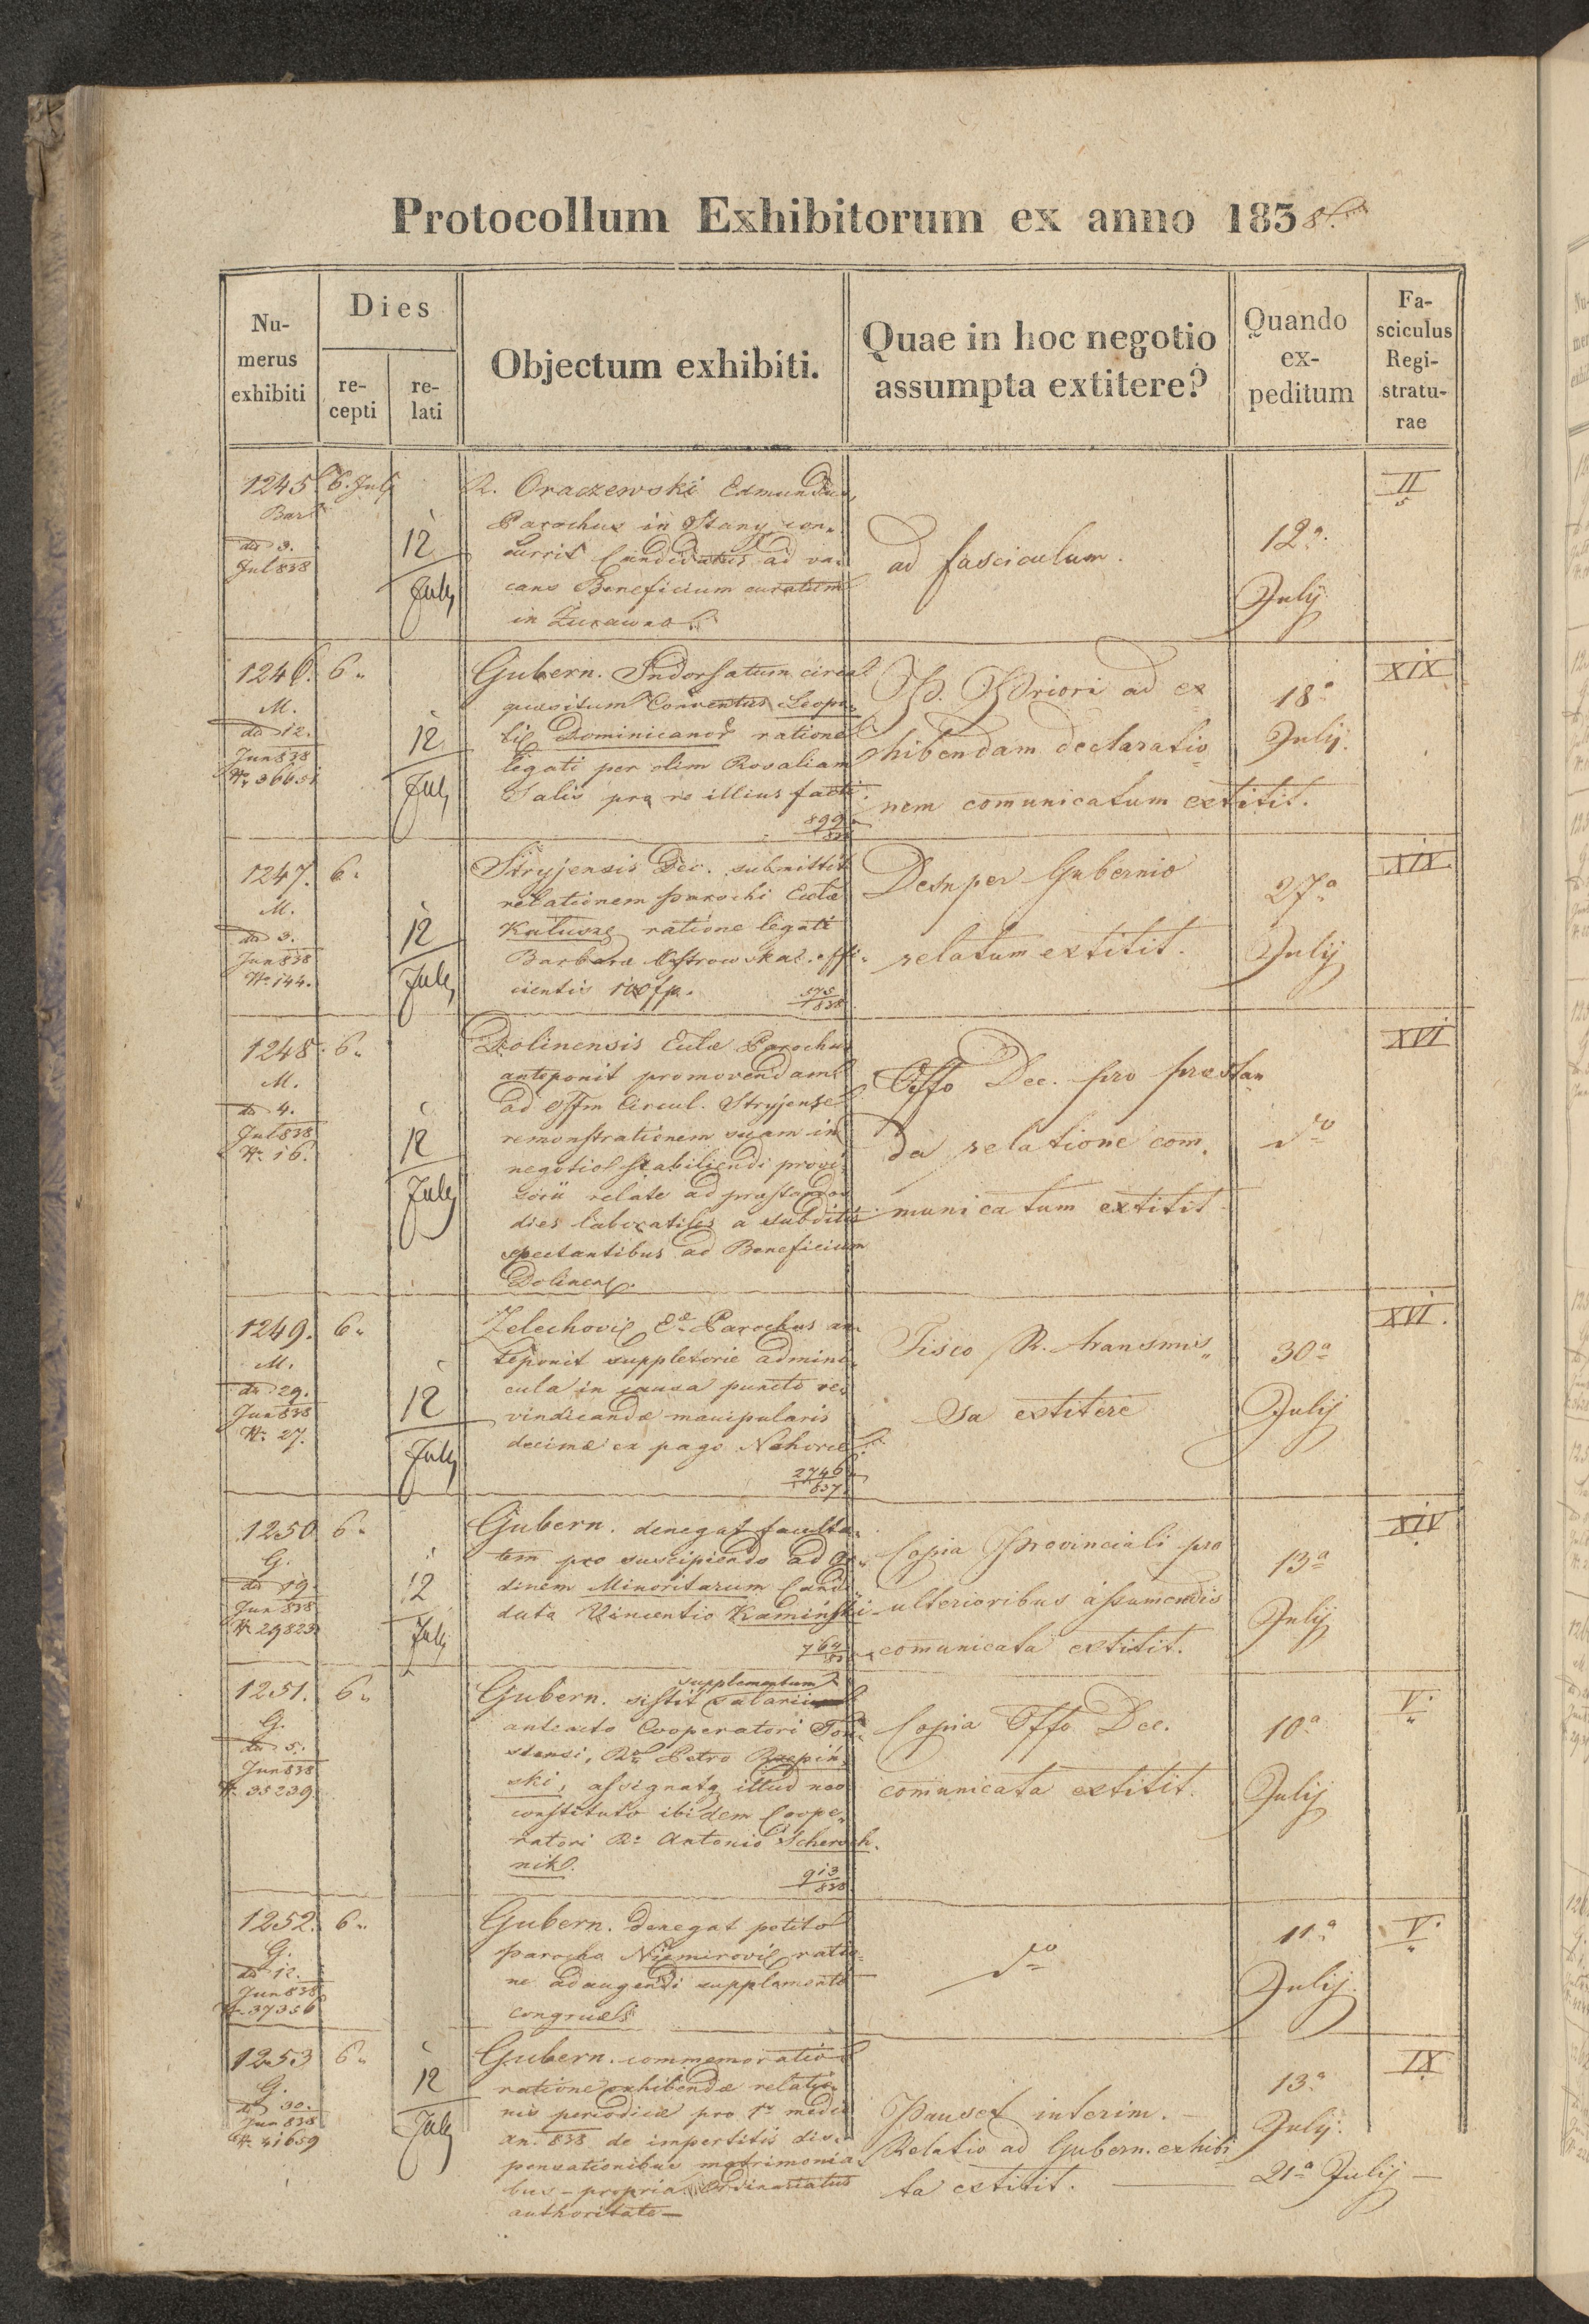 Protocollum Exhibitorum ex anno 1838.
Numerus exhibiti
Dies
recepti
relati
Objectum exhibiti.
Quae in hoc negotio assumpta extitere?
Quando expeditum
Fasciculus Registraturae
1245
6. July
Bar
dd 3.
Jul 838
12
July
R. Oraczewski Edmundus,
Parochus in Stany con-
currit Candidatus ad va-
cans Beneficium curatum
in Żurawno
ad fasciculum.
12a
July
II
5
1246.
6.
M.
dd 12.
Jun 838
12
July
Gubern. Indorsatum circa
quaesitum Conventus Leopo-
Dominicanor ratione
legati per olim Rosaliam
Salis pro re illius facti
899
838
P. Priori ad ex
hibendam declaratio
nem comunicatum extitit.
18a
July.
XIX
1247.
6.
M.
dd 3.
Jun 838
N. 144.
12
July
Stryjensis Dec. submittit
relationem parochi Eccłae
Kałusze ratione legati
Barbarae Ostrowska effi-
cientis 100 fr.
575
838
Desuper Gubernio
relatum extitit.
27a
July
XIX.
1248.
6.
M.
dd 4.
Jul 838
N. 16.
12
July
Dolinensis Eccłae Parochus
anteponit promovendam
ad Offm Circul. Stryjense
remonstrationem suam in
negotio stabiliendi provi-
sorii relate ad praestandos
dies laboratiles a subditis
spectantibus ad Beneficium
Dolinens.
Offo Dec. pro praestan
da relatione com.
municatum extitit
dto
XVI
1249.
6.
M.
dd 29.
Jun 838
N. 27.
12
July
Parochus an-
teponit suppletorie admini-
cula in causa puncto re-
vindicandae manipularis
decimae ex pago Nahorce
2746
837
Fisco R. transmis-
sa extitere
30a
July
XVI.
1250
6.
G.
dd 19.
Jun 838
N. 29823
12
July
Gubern. denegat faculta-
tem pro suscipiendo ad or-
dinem Minoritarum Candi-
dato Vincentio Kamiński
764
838
Copia Provinciali pro
ulterioribus assumendis
comunicata extitit.
13a
July
XIV
1251.
6.
G.
dd 5.
Jun 838
N. 35239
Gubern. sistit supplementum salarii
anteacto Cooperatori Tou-
stensi, Rdo Petro Rzepiń-
ski, assignato illud neo
constituto ibidem Coope-
ratori R. Antonio Scherosch-
nik.
913
838
Copia Offo Dec.
comunicata extitit.
10a
July
V.
1252.
6.
G.
dd 12.
Jun 838
N. 37356
Gubern. denegat petito
parocho Niemirovie. ratio-
ne adaugendi supplemento
congruae
dto
11a
July.
V.
1253
6.
G.
dd 30.
Jun 838
N. 41659
12
July
Gubern. commemoratio
ratione exhibendae relatio-
nis periodicae pro 1o medio
an. 838 de impertitis dis-
pensationibus matrimonia-
bus - propria Ordinariatus
authoritate -
Pauset interim. -
Relatio ad Gubern. exhibi
ta extitit.
13a
July.
21a July -
IX